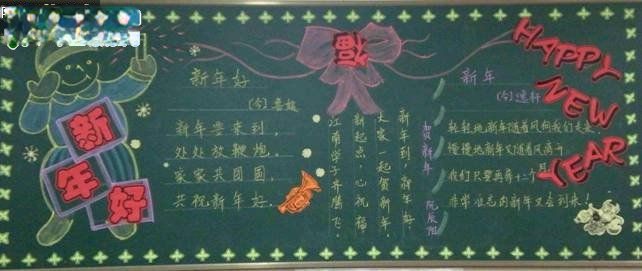 新年好
新年好
(今)
新年要来到，
处处放鞭炮。
家家共团圆，
共祝新年好。
福
贺新年
新年到，新年好，
大家一起贺新年。
新起点，心祝福
江南学子齐腾飞。
新年
(今)
轻轻地新年随着风向我们走来，
慢慢地新年又随着风
我们只要再等十二个月
非常
新年又会到来！
HAPPY
NEW
YEAR